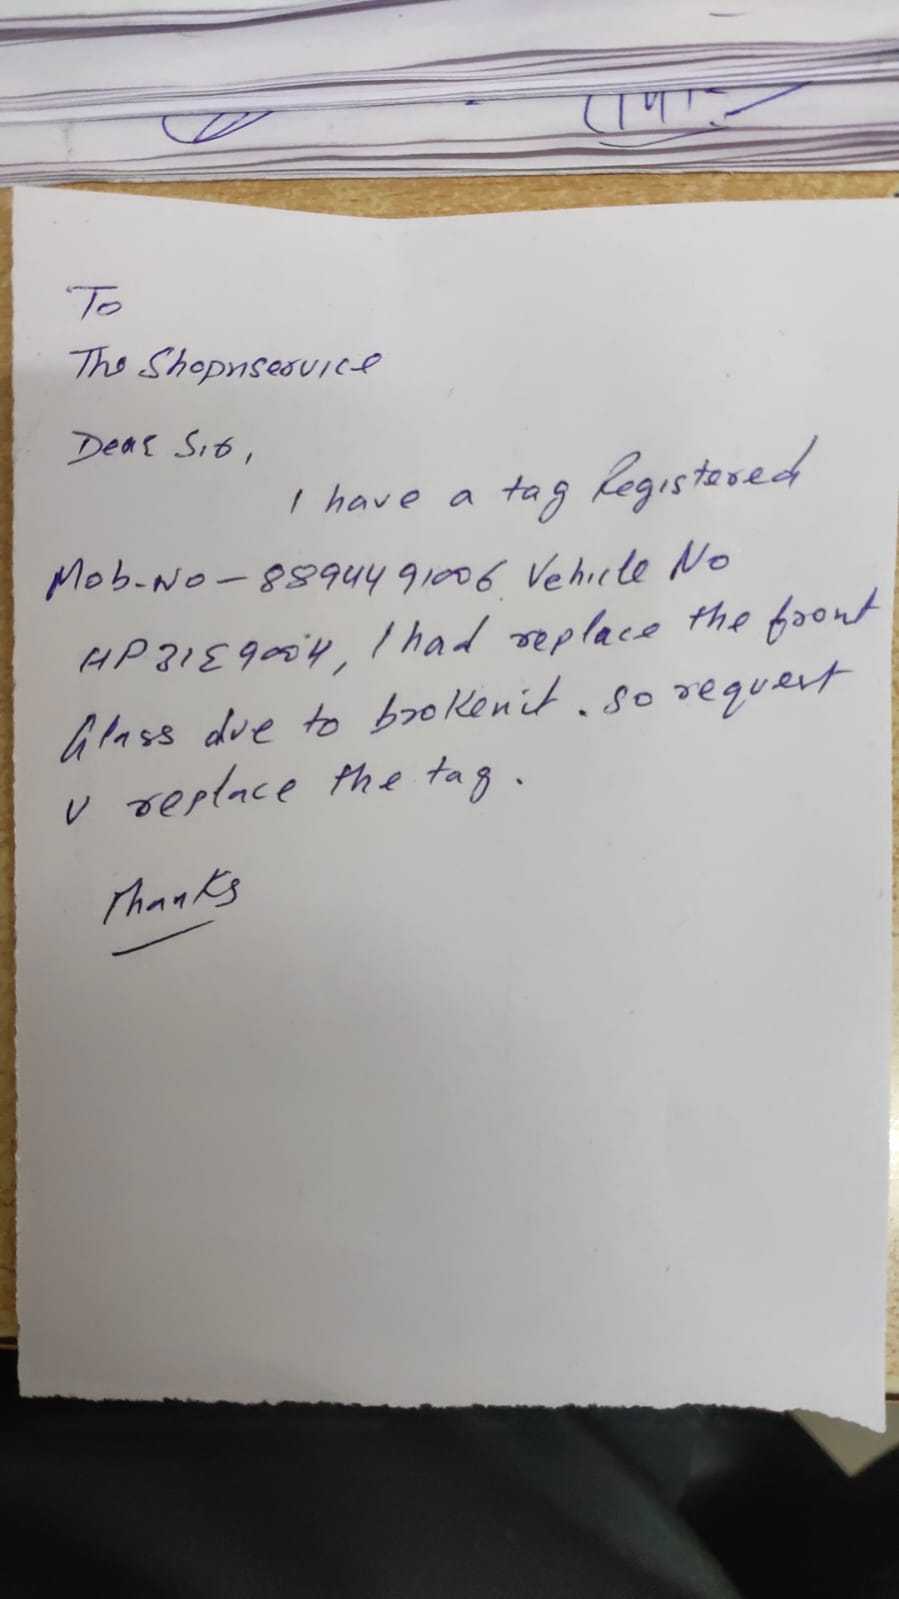 To
The Shopnservice
Dear Sir,
I have a tag Registered
Mob-No - 8894491006 Vehicle No
HP31E9004, I had replace the front
Glass due to broken it . so request
U replace the tag .
Thanks